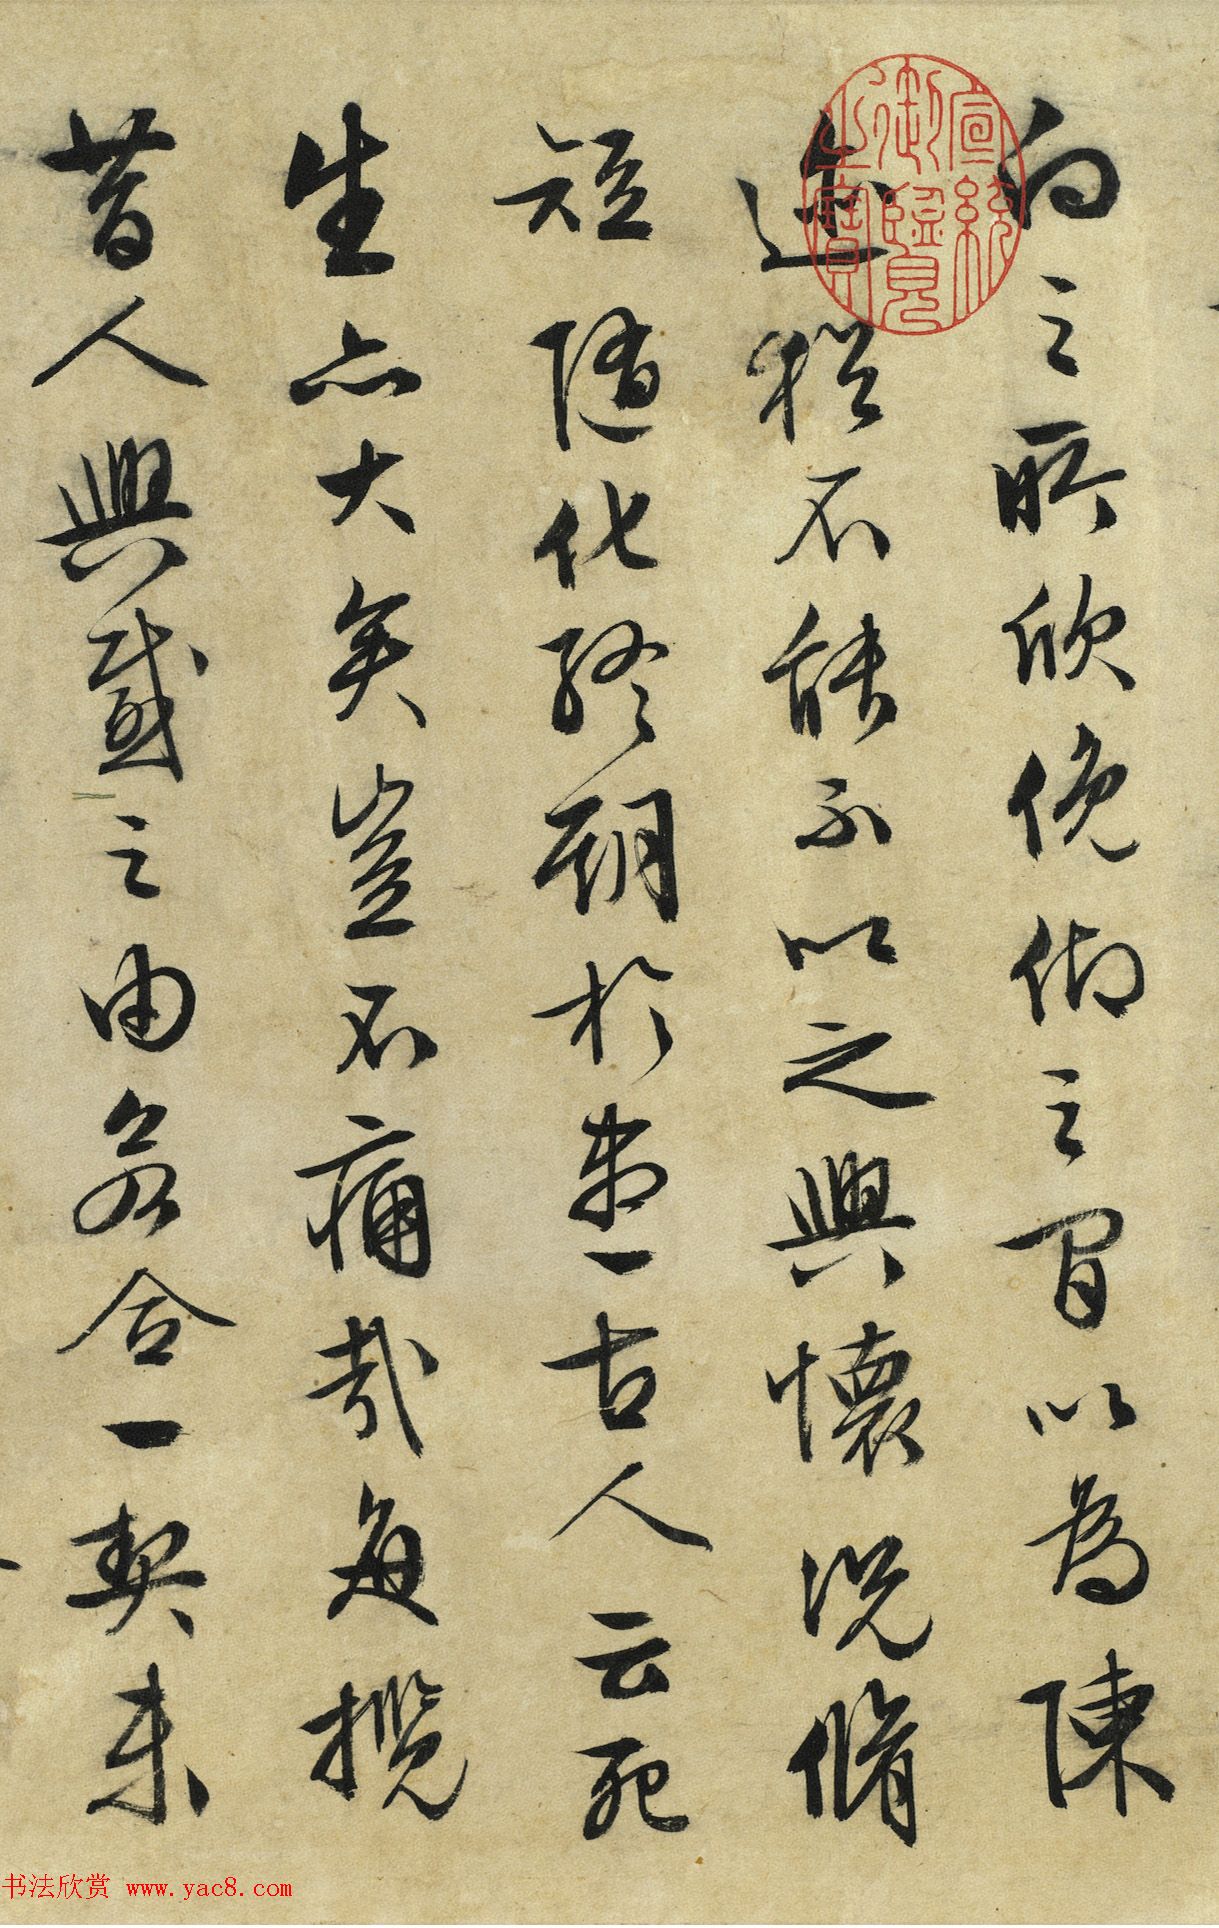 向之所欣俛仰之間以為陳
迹猶不能不以之興懷況脩
短隨化終期於盡古人云死
生亦大矣豈不痛哉每攬
昔人興感之由若合一契未
宣統御覽之寶
书法欣赏 www.yac8.com